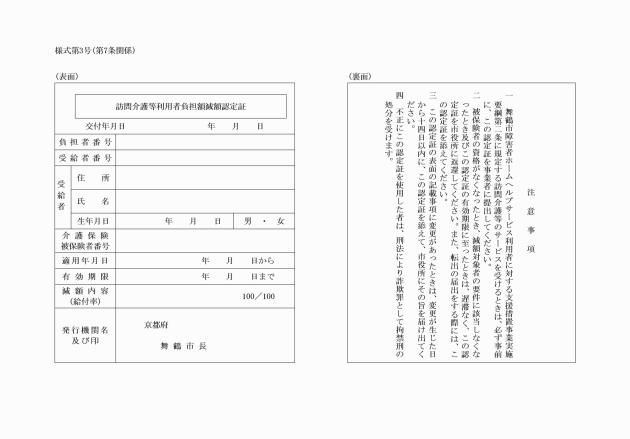 様式第3号(第7条関係)
(表面)
訪問介護等利用者負担額減額認定証
交付年月日 年 月 日
負担者番号
受給者番号
受給者
住所
氏名
生年月日 年 月 日 男・女
介護保険
被保険者番号
適用年月日 年 月 日から
有効期限 年 月 日まで
減額内容
(給付率)
100/100
発行機関名
及び印
京都府
舞鶴市長
(裏面)
注意事項
一 舞鶴市障害者ホームヘルプサービス利用者に対する支援措置事業実施
要綱第二条に規定する訪問介護等のサービスを受けるときは、必ず事前
に、この認定証を事業者に提出してください。
二 被保険者の資格がなくなったとき、減額対象者の要件に該当しなくな
ったとき及びこの認定証の有効期限に至ったときは、遅滞なく、この認
定証を市役所に返還してください。また、転出の届出をする際には、こ
の認定証を添えてください。
三 この認定証の表面の記載事項に変更があったときは、変更が生じた日
から十四日以内に、この認定証を添えて、市役所にその旨を届け出てく
ださい。
四 不正にこの認定証を使用した者は、刑法により詐欺罪として拘禁刑の
処分を受けます。